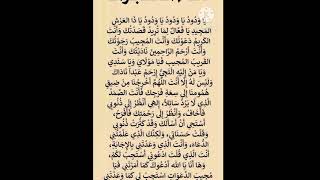 يَا وَدُودُ يَا وَدُودُ يَا وَدُودُ يَا ذَا العَرْشِ
المَجِيدِ يَا فَعَّالٌ لِمَا تُرِيدُ قَصَدْتُكَ وَأَنْتَ
الكَرِيمُ دَعَوْتُكَ وَأَنْتَ المُجِيبُ رَجَوْتُكَ
وَأَنْتَ أَرْحَمُ الرَّاحِمِينَ نَادَيْتُكَ وَأَنْتَ
القَرِيبُ المُجِيبُ فَيَا مَوْلَايَ وَيَا سَنَدِي
وَيَا مَنْ إِلَيْهِ أَلْتَجِئُ إِرْحَمْ عَبْداً نَادَاكَ
وَلَيْسَ لَهُ إِلَّا أَنْتَ اللَّهُمَّ أَخْرِجْنَا مِنْ ضِيقِ
هُمُومِنَا إِلَى سِعَةِ فَرَجِكَ فَأَنْتَ الصَّمَدُ
الَّذِي لَا يَرُدُّ سَائِلاً، إِلَهِي أَنْظُرُ إِلَى ذُنُوبِي
فَأَخَافُ، وَأَنْظُرُ إِلَى رَحْمَتِكَ فَأَفْرَحُ،
أَسْتَحِي أَنْ أَسْأَلَكَ وَقَدْ كَثُرَتْ ذُنُوبِي
وَقَلَّتْ حَسَنَاتِي، وَلَكِنَّكَ الَّذِي عَلَّمْتَنِي
الدُّعَاءَ، وَأَنْتَ الَّذِي وَعَدْتَنِي بِالإِجَابَةِ،
أَنْتَ الَّذِي قُلْتَ ادْعُونِي أَسْتَجِبْ لَكُمْ،
وَهَا أَنَا يَا اللَّه أَدْعُوكَ كَمَا أَمَرْتَنِي فَيَا
مُجِيبَ الدَّعَوَاتِ اسْتَجِبْ لِي كَمَا وَعَدْتَنِي